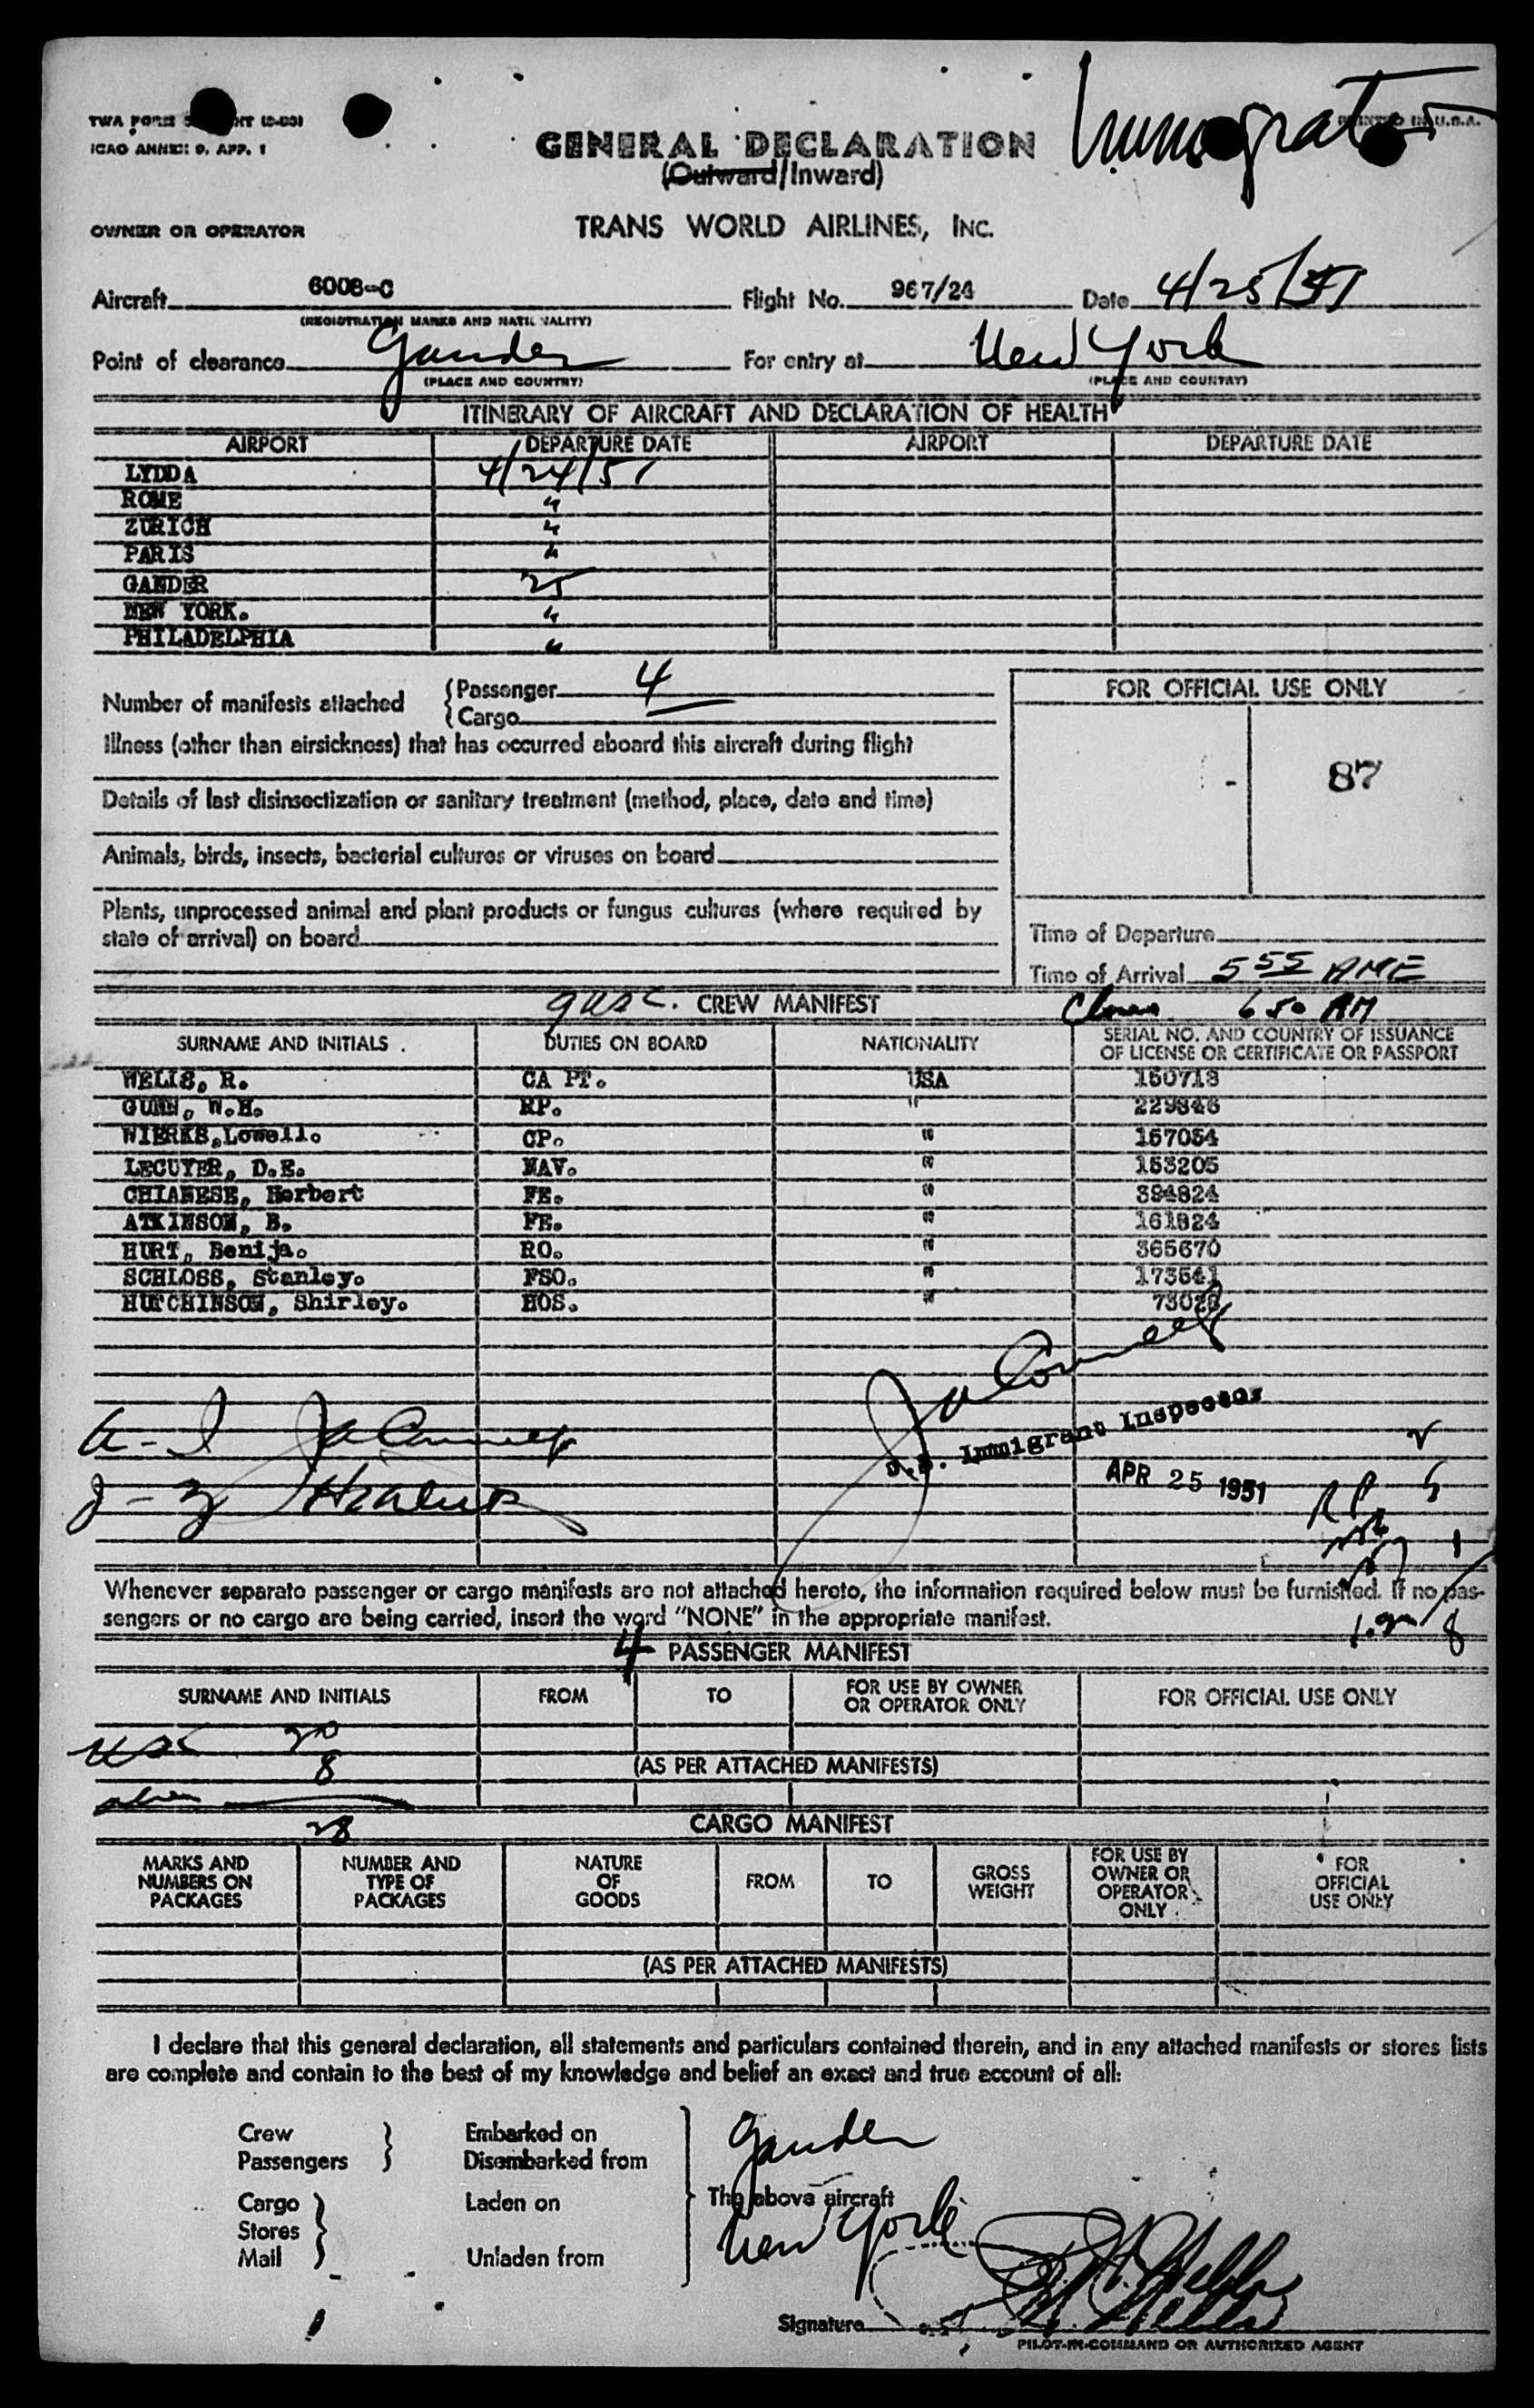 TWA FORM
ICAO ANNEX 9, APP. 1
PRINTED IN U.S.A.
GENERAL DECLARATION
(Outward/Inward)
OWNER OR OPERATOR
TRANS WORLD AIRLINES, INC.
Aircraft 6008-C Flight No. 967/24 Date 4/25/51
(REGISTRATION MARKS AND NATIONALITY)
Point of clearance Gander For entry at New York
(PLACE AND COUNTRY) (PLACE AND COUNTRY)
ITINERARY OF AIRCRAFT AND DECLARATION OF HEALTH
AIRPORT DEPARTURE DATE AIRPORT DEPARTURE DATE
LYDDA 4/24/51
ROME "
ZURICH "
PARIS "
GANDER 25
NEW YORK. "
PHILADELPHIA "
Number of manifests attached { Passenger 4
{ Cargo
FOR OFFICIAL USE ONLY
Illness (other than airsickness) that has occurred aboard this aircraft during flight
- 87
Details of last disinsectization or sanitary treatment (method, place, date and time)
Animals, birds, insects, bacterial cultures or viruses on board
Plants, unprocessed animal and plant products or fungus cultures (where required by
state of arrival) on board
Time of Departure
Time of Arrival 5 55 AME
9 USC. CREW MANIFEST 6 50 AM
SURNAME AND INITIALS . DUTIES ON BOARD NATIONALITY SERIAL NO. AND COUNTRY OF ISSUANCE
OF LICENSE OR CERTIFICATE OR PASSPORT
WELLS, R. CAPT. USA
GUNN, W.H. RP. "
WIERKS, Lowell. CP. " 157054
LECUYER, D.E. NAV. " 153205
CHIANESE, Herbert FE. " 394824
ATKINSON, B. FE. " 161824
HURT, Benija. RO. " 365670
SCHLOSS, Stanley. PSO. " 173541
HUTCHINSON, Shirley. HOS. "
U.S. Immigrant Inspector
APR 25 1951
Whenever separate passenger or cargo manifests are not attached hereto, the information required below must be furnished. If no pas-
sengers or no cargo are being carried, insert the word "NONE" in the appropriate manifest.
4 PASSENGER MANIFEST
SURNAME AND INITIALS FROM TO FOR USE BY OWNER
OR OPERATOR ONLY FOR OFFICIAL USE ONLY
USC 20
8 (AS PER ATTACHED MANIFESTS)
28 CARGO MANIFEST
MARKS AND
NUMBERS ON
PACKAGES
NUMBER AND
TYPE OF
PACKAGES
NATURE
OF
GOODS
FROM
TO
GROSS
WEIGHT
FOR USE BY
OWNER OR
OPERATOR
ONLY
FOR
OFFICIAL
USE ONLY
(AS PER ATTACHED MANIFESTS)
I declare that this general declaration, all statements and particulars contained therein, and in any attached manifests or stores lists
are complete and contain to the best of my knowledge and belief an exact and true account of all:
Crew
Passengers }
Embarked on
Disembarked from
Gander
Cargo
Stores
Mail }
Laden on
Unladen from
The above aircraft
New York
Signature
PILOT-IN-COMMAND OR AUTHORIZED AGENT